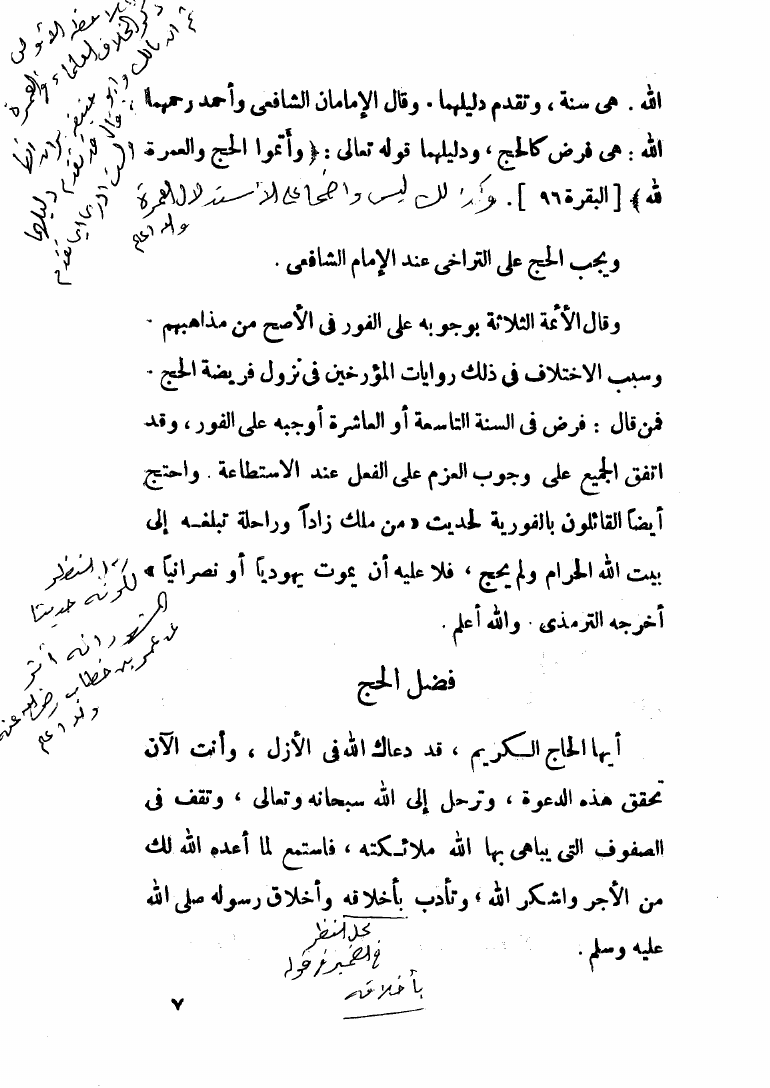 الله . هى سنة ، وتقدم دليلهما . وقال الإمامان الشافعى وأحمد رحمهما
الله : هى فرض كالحج ، ودليلهما قوله تعالى : ﴿ وأتموا الحج والعمرة
لله ﴾ [ البقرة ٩٦ ] . وكذلك ليس واضحا على الأستدلال العمرة
والله اعلم
ويجب الحج على التراخى عند الإمام الشافعى .
وقال الأئمة الثلاثة بوجوبه على الفور فى الأصح من مذاهبهم .
وسبب الاختلاف فى ذلك روايات المؤرخين فى نزول فريضة الحج .
فمن قال : فرض فى السنة التاسعة أو العاشرة أوجبه على الفور ، وقد
اتفق الجميع على وجوب العزم على الفعل عند الاستطاعة . واحتج
أيضاً القائلون بالفورية لحديث « من ملك زاداً وراحلة تبلغــه إلى
بيت الله الحرام ولم يحج ، فلا عليه أن يموت يهودياً أو نصرانياً »
أخرجه الترمذى . والله أعلم .
النظر
لكونه حديثا
المشهور انه أثر
عن عمر بن خطاب رضي الله عنه
والله اعلم
فضل الحج
أيها الحاج الـكريم ، قد دعاك الله فى الأزل ، وأنت الآن
تحقق هذه الدعوة ، وترحل إلى الله سبحانه وتعالى ، وتقف فى
الصفوف التى يباهى بها الله ملائـكته ، فاستمع لما أعده الله لك
من الأجر واشكر الله ، وتأدب بأخلاقه وأخلاق رسوله صلى الله
عليه وسلم .
محل النظر
في الضمير في قوله
بأخلاقه
٧